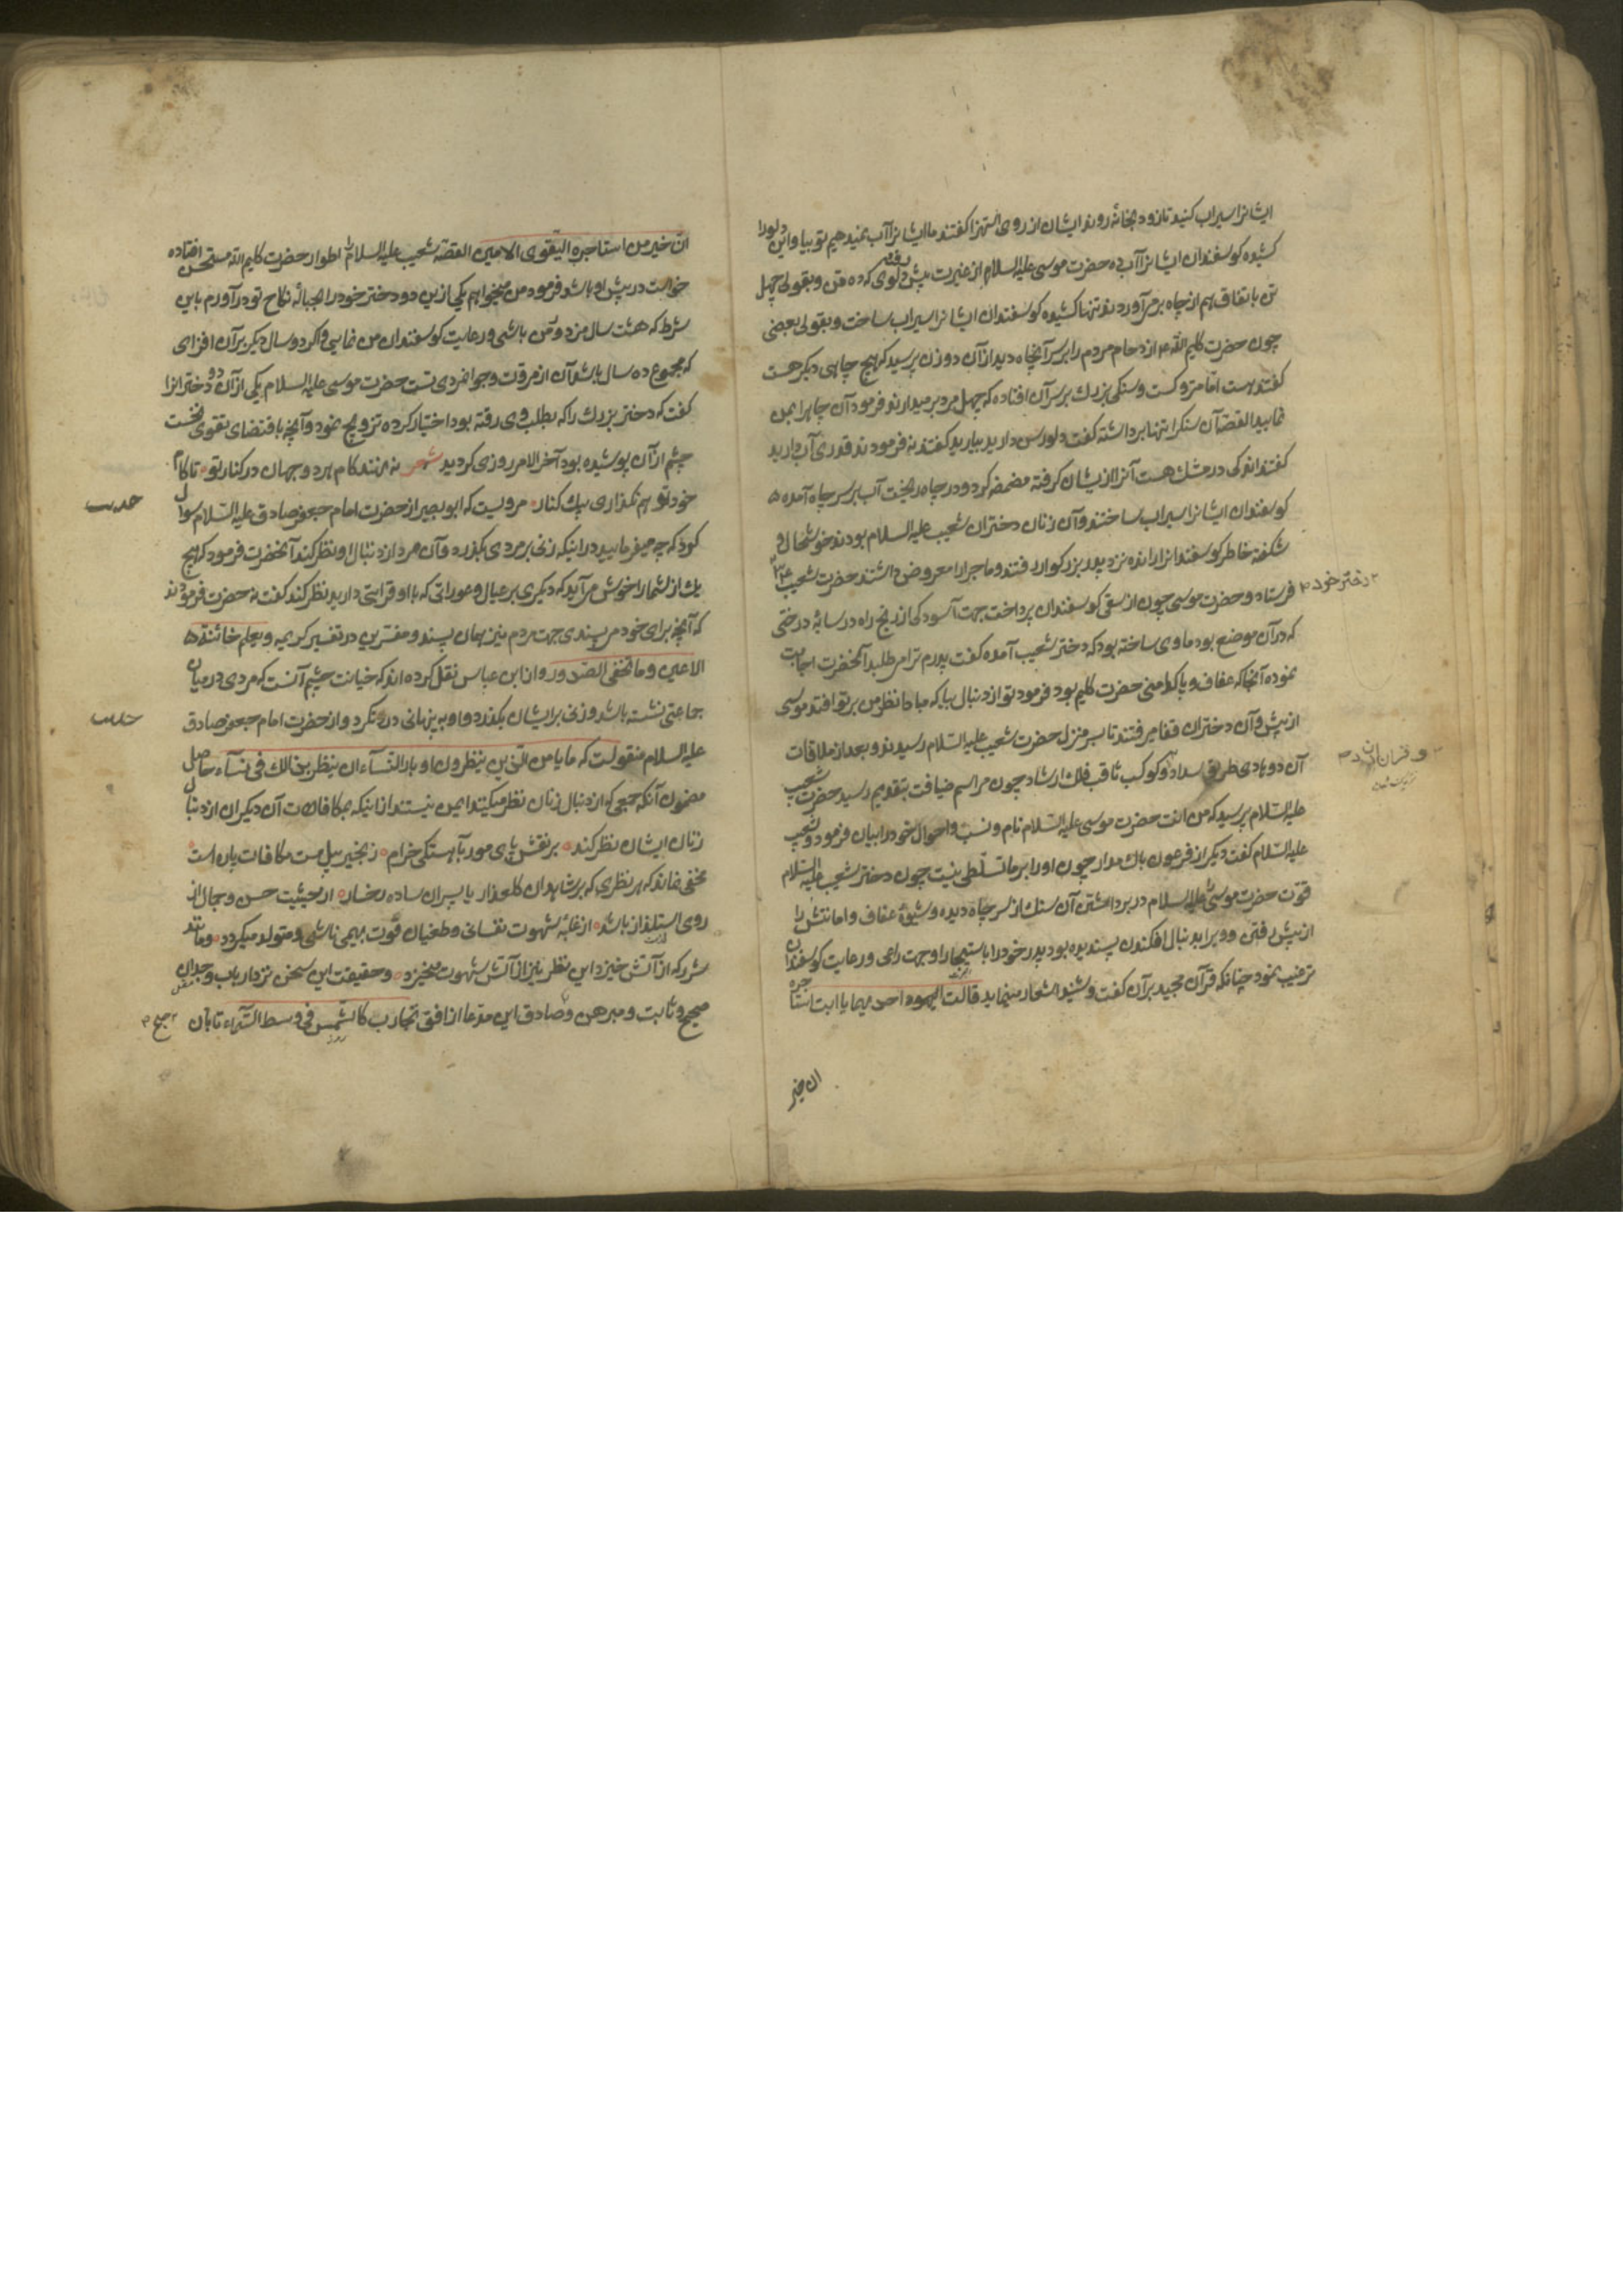 ایشانرا سیراب کنید تا زود بخانه روند ایشان از روی استهزا کفتند ما ایشانرا آب نمیدهیم تو بیا و این دلو را
کشیده کوسفندان ایشانرا آب ده حضرت موسی علیه السلام از غیرت پیش رفته دلوی که ده تن و بقولی چهل
تن باتفاق هم از چاه بر می آوردند تنها کشیده کوسفندان ایشانرا سیراب ساخت و بقولی بعضی
چون حضرت کلیم الله ازدحام مردم را بر سر آنچاه دید از آن دو زن پرسید که هیچ چاهی دیکر هست
کفتند هست امّا متروکست و سنکی بزرك بر سر آن افتاده که چهل مرد بر میدارند فرمود آن چاه را بمن
نمایید القصه آن سنک را تنها برداشته کفت دلو رسن دارید بیارید کفتند نه فرمودند قدری آب دارید
کفتند اندکی در مشك هست آنرا از ایشان کرفته مضمضه کرد و در چاه ریخت آب بر سر چاه آمده
کوسفندان ایشانرا سیراب ساختند و آن زنان دختران شعیب علیه السلام بودند خوشحال و
شکفته خاطر کوسفندانرا رانده نزد پدر بزرکوار رفتند و ماجرا را معروض داشتند حضرت شعیب
۲ دختر خود ۳ فرستاد و حضرت موسی چون از سقی کوسفندان پرداخت جهت آسودکی از رنج راه در سایهٔ درختی
که در آن موضع بود ماوی ساخته بود که دختر شعیب آمده کفت پدرم ترا می طلبد آنحضرت اجابت
نموده آنجا که عفاف و پاکدامنی حضرت کلیم بود فرمود تو از دنبال بیا که مبادا نظر من بر تو افتد موسی
از پیش و آن دختران قفا میرفتند تا بسر منزل حضرت شعیب علیه السلام رسیدند و بعد از ملاقات
آن دو هادی طریق سداد و کوکب ثاقب فلك ارشاد چون مراسم ضیافت بتقدیم رسید حضرت شعیب
علیه السّلام پرسید که من انت حضرت موسی علیه السّلام نام و نسب و احوال خود را بیان فرمود و شعیب
علیه السّلام کفت دیکر از فرعون باك مدار چون او را بر ما تسلّطی نیست چون دختر شعیب علیه السّلام
قوّت حضرت موسی علیه السلام در برداشتن آن سنك از سر چاه دیده و شیوهٔ عفاف و امانتش را
از پیش رفتن و ویرا بدنبال افکندن پسندیده بود پدر خود را باستیجار او جهت راعی و رعایت کوسفندان
ترغیب نمود چنانکه قرآن مجید بر آن کفت و شنید اشعار مینماید قالت احدیهما یا ابت استاجره
ان خیر
انّ خیر من استاجرت القوی الامین القصّه شعیب علیه السلام را اطوار حضرت کلیم الله مستحسن افتاده
خواست در پیش او باشد فرمود من میخواهم یکی ازین دو دختر خود را بحبالهٔ نکاح تو در آورم باین
شرط که هشت سال مزدور من باشی و رعایت کوسفندان من نمایی و اکر دو سال دیکر بر آن افزای
که مجموع ده سال باشد آن از مروّت و جوانمردی تست حضرت موسی علیه السلام یکی از آن دو دختر انرا
کفت که دختر بزرك را که بطلب وی رفته بود اختیار کرده تزویج نمود و آنچه باقتضای تقوی نخست
چشم از آن پوشیده بود آخر الامر روزی کردید شعر ننهند کام هر دو جهان در کنار تو تا کام
خود تو هم نکذاری بیك کنار مرویست که ابو بصیر از حضرت امام جعفر صادق علیه السّلام سوال
حدیث
کرد که چه میفرمایید در اینکه زنی بر مردی بکذرد و آن مرد از دنبال او نظر کند آنحضرت فرمود که هیچ
یك از شما را خوش می آید که دیکری بر عیال و عوراتی که با او قرابتی دارید نظر کند کفت نه حضرت فرمودند
که آنچه برای خود می پسندی جهت مردم نیز همان پسند و مفسّرین در تفسیر کریمه و یعلم خائنة
الاعین و ما تخفی الصّدور از ابن عباس نقل کرده اند که خیانت چشم آنست که مردی در میان
جماعتی نشسته باشد و زنی بر ایشان بکذرد و او به پنهانی در نکرد و از حضرت امام جعفر صادق
حدیث
علیه السلام منقولست که ما یامن الّذین ینظرون ادبار النّسآء ان ینظر بذالك فی نسآء حاصل
مضمون آنکه جمعی که از دنبال زنان نظر میکنند ایمن نیستند از اینکه بمکافات آن دیکران از دنبال
زنان ایشان نظر کند بر نقش پای مور بآهستکی خرام زنجیر پیل مست مکافات پاره است
مخفی نماند که هر نظری که بر شاهدان کلعذار یا پسران ساده رخسار از حیثیت حسن و جمال از
روی استلذاذ باشد از غلبهٔ شهوت نفسانی و طغیان قوّت بهیمی ناشی و متولد میکردد و مانند
شرر که از آتش خیزد این نظر نیز از آتش شهوت میخیزد و حقیقت این سخن نزد ارباب وجدان
صحیح و ثابت و مبرهن و صادق این مدّعا از افق تجارب کالشّمس فی وسط السّمآء تابان